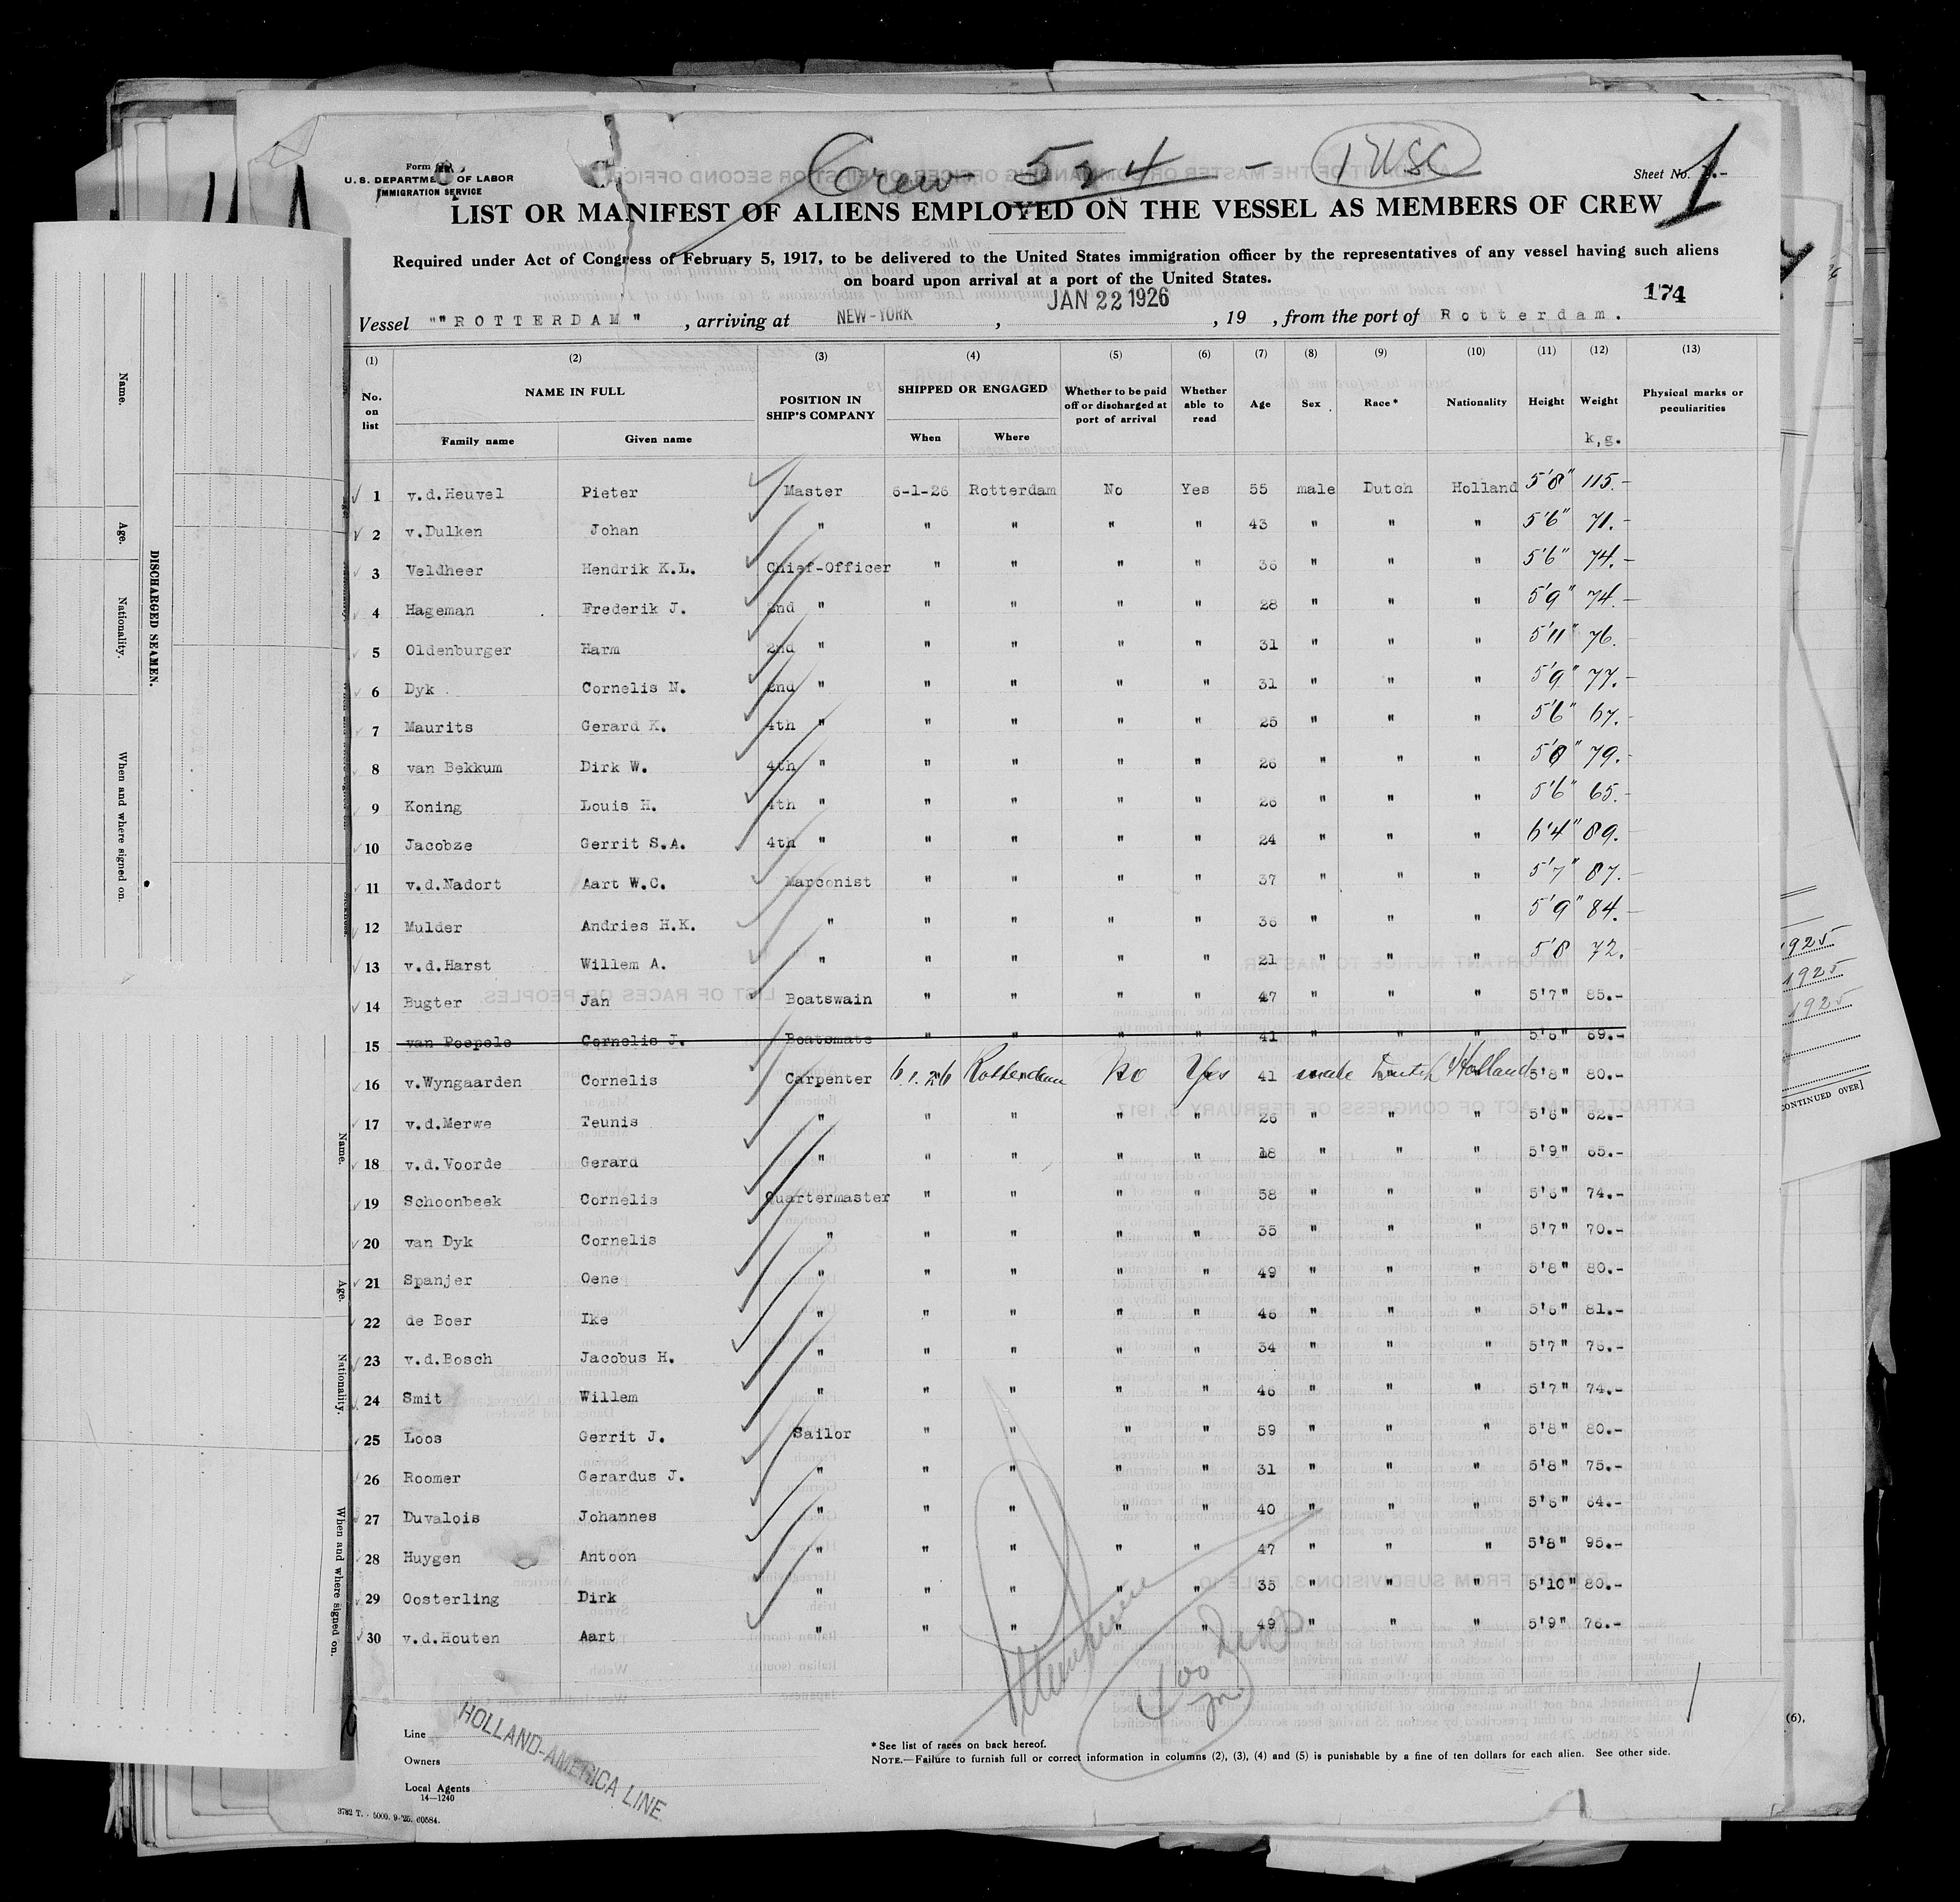 Crew 524 - 1 USC
Form
U.S. DEPARTMENT OF LABOR
IMMIGRATION SERVICE
Sheet No. 1
LIST OR MANIFEST OF ALIENS EMPLOYED ON THE VESSEL AS MEMBERS OF CREW
Required under Act of Congress of February 5, 1917, to be delivered to the United States immigration officer by the representatives of any vessel having such aliens
on board upon arrival at a port of the United States.
174
Vessel ""ROTTERDAM", arriving at NEW-YORK, JAN 22 1926, 19 , from the port of Rotterdam.
(1) (2) (3) (4) (5) (6) (7) (8) (9) (10) (11) (12) (13)
No. on list NAME IN FULL Family name Given name POSITION IN SHIP'S COMPANY SHIPPED OR ENGAGED When Where Whether to be paid off or discharged at port of arrival Whether able to read Age Sex Race* Nationality Height Weight k,g. Physical marks or peculiarities
1 v.d.Heuvel Pieter Master 6-1-26 Rotterdam No Yes 55 male Dutch Holland 5'8" 115.-
2 v.Dulken Johan " " " " " 43 " " " 5'6" 71.-
3 Veldheer Hendrik K.L. Chief-Officer " " " " 36 " " " 5'6" 74.-
4 Hageman Frederik J. 2nd " " " " " 28 " " " 5'9" 74.-
5 Oldenburger Harm 2nd " " " " " 31 " " " 5'11" 76.
6 Dyk Cornelis N. 2nd " " " " " 31 " " " 5'9" 77.-
7 Maurits Gerard K. 4th " " " " " 25 " " " 5'6" 67.-
8 van Bekkum Dirk W. 4th " " " " " 26 " " " 5'8" 79.-
9 Koning Louis H. 4th " " " " " 26 " " " 5'6" 65.-
10 Jacobze Gerrit S.A. 4th " " " " " 24 " " " 6'4" 89.-
11 v.d.Nadort Aart W.C. Marconist " " " " 37 " " " 5'7" 87.-
12 Mulder Andries H.K. " " " " " 36 " " " 5'9" 84.-
13 v.d.Harst Willem A. " " " " " 21 " " " 5'8 72.
14 Bugter Jan Boatswain " " " " 47 " " " 5'7" 85.-
15 van Poepele Cornelis J. Boatsmate " " " " 41 " " " 5'6" 69.-
16 v.Wyngaarden Cornelis Carpenter 6.1.26 Rotterdam No Yes 41 male Dutch Holland 5'8" 80.-
17 v.d.Merwe Teunis " " " " " 26 " " " 5'6" 62.-
18 v.d.Voorde Gerard " " " " " 18 " " " 5'9" 65.-
19 Schoonbeek Cornelis Quartermaster " " " " 58 " " " 5'6" 74.-
20 van Dyk Cornelis " " " " " 35 " " " 5'7" 70.-
21 Spanjer Oene " " " " " 49 " " " 5'8" 80.-
22 de Boer Ike " " " " " 46 " " " 5'6" 81.-
23 v.d.Bosch Jacobus H. " " " " " 34 " " " 5'7" 76.-
24 Smit Willem " " " " " 46 " " " 5'7" 74.-
25 Loos Gerrit J. Sailor " " " " 59 " " " 5'8" 80.-
26 Roomer Gerardus J. " " " " " 31 " " " 5'8" 75.-
27 Duvalois Johannes " " " " " 40 " " " 5'6" 64.-
28 Huygen Antoon " " " " " 47 " " " 5'8" 95.-
29 Oosterling Dirk " " " " " 35 " " " 5'10" 80.-
30 v.d.Houten Aart " " " " " 49 " " " 5'9" 76.-
Line
Owners
Local Agents
HOLLAND-AMERICA LINE
14—1240
3782 T. - 5000. 9-'25. 60584.
*See list of races on back hereof.
NOTE.—Failure to furnish full or correct information in columns (2), (3), (4) and (5) is punishable by a fine of ten dollars for each alien. See other side.
DISCHARGED SEAMEN.
Name.
Age.
Nationality.
When and where signed on.
Name.
Age.
Nationality.
When and where signed on.
1925
1925
1925
CONTINUED OVER]
(6),